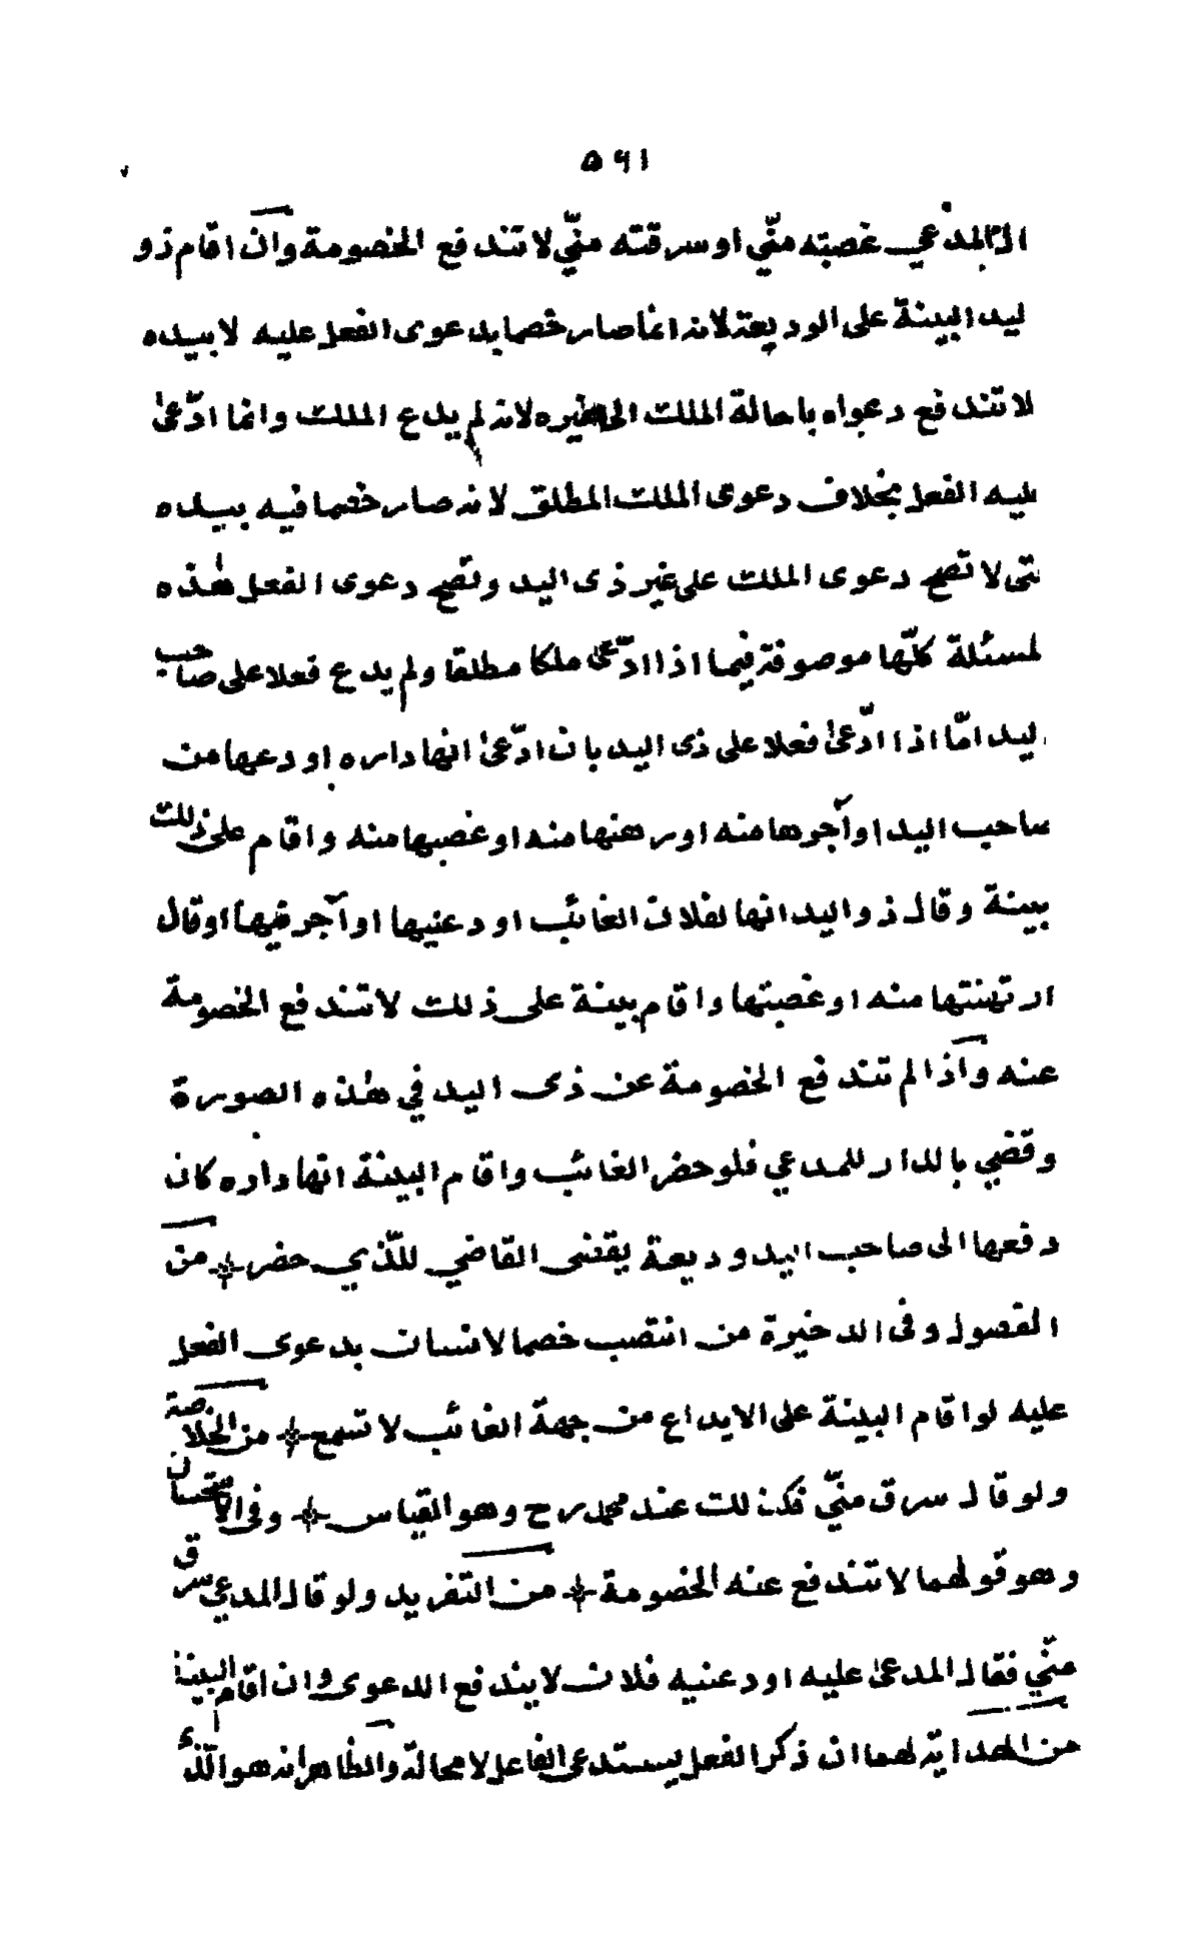 ٥٩١
المدعي غصبته منّي او سرقته منّي لا تندفع الخصومة وان اقام ذو
ليد البينة على الوديعة لانه انما صار خصما بدعوى الفعل عليه لا بيده
لا تندفع دعواه باحالة الملك الى غيره لانه لم يدع الملك وانما ادّعىٰ
ليه الفعل بخلاف دعوى الملك المطلق لانه صار خصما فيه بيده
تى لا تصح دعوى الملك على غير ذى اليد وتصح دعوى الفعل هٰذه
لمسئلة كلّها موصوفة فيما اذا ادّعىٰ ملكا مطلقا ولم يدع فعلا على صاحب
ليد امّا اذا ادّعىٰ فعلا على ذى اليد بان ادّعىٰ انها داره اودعها من
صاحب اليد او آجرها منه او رهنها منه او غصبها منه واقام على ذلك
بينة وقال ذو اليد انها لفلان الغائب اودعنيها او آجرفيها او قال
ارتهنتها منه او غصبتها واقام بينة على ذلك لا تندفع الخصومة
عنه واذا لم تندفع الخصومة عن ذى اليد في هٰذه الصورة
وقضي بالدار للمدعي فلو حضر الغائب واقام البينة انها داره كان
دفعها الى صاحب اليد وديعة يقضى القاضي للّذي حضر ۞ من
الفصول وفى الذخيرة من انتصب خصما لانسان بدعوى الفعل
عليه لو اقام البينة على الايداع من جهة الغائب لا تسمع ۞ من الخلاصة
ولو قال سرق منّي فكذلك عند محمد رح وهو القياس ۞ وفى الاستحسان
وهو قولهما لا تندفع عنه الخصومة ۞ من التفريد ولو قال المدعي سرق
منّي فقال المدعىٰ عليه اودعنيه فلان لا يندفع الدعوى وان اقام البينة
من الهداية لهما ان ذكر الفعل يستدعى الفاعل لا محالة والظاهر انه هو الّذي